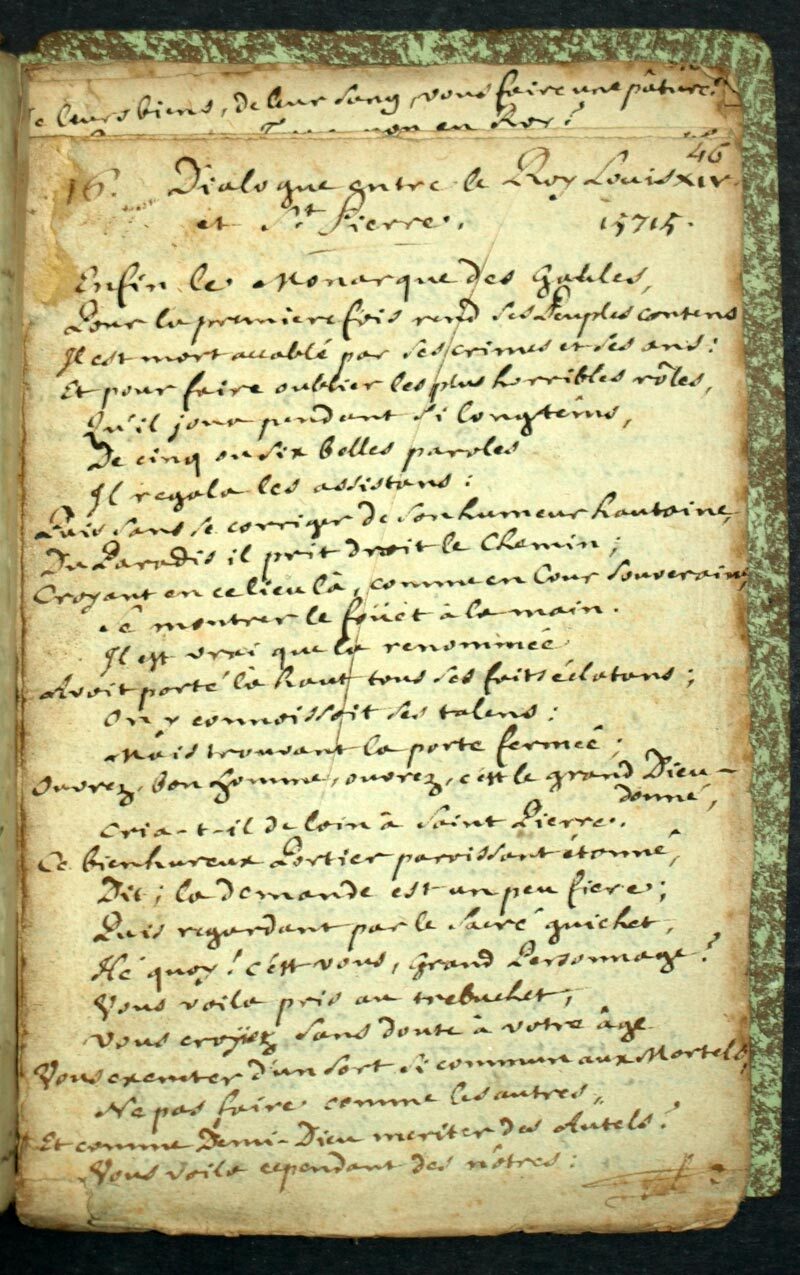 leurs biens, de leur sang, vous faire une pâture?
non en Roy?
46
16. Dialogue entre le Roy Louis XIV.
et St. Pierre. 1715.
Enfin le Monarque des Gaules,
Pour la premiere fois rend ses Peuples contens
Il est mort accablé par ses crimes et ses ans:
Et pour faire oublier les plus horribles rôles,
Qu'il joua pendant si longtêms,
De cinq ou six belles paroles
Il regala les assistans:
Puis sans se corriger de son humeur hautaine,
Du Paradis il prit droit le Chemin;
Croyant en ce lieu là, comme en Cour Souveraine,
Se montrer le foüet à la main.
Il est vrai que la renommée
Avoit porté là haut tous ses faits éclatans;
On y connoissoit ses talens:
Mais trouvant la porte fermée;
Ouvrez, bon homme, ouvrez, c'est le grand Dieu-
donné,
Cria-t-il de loin à Saint Pierre.
Ce bienhureux Portier paroissant étonné,
Dit; la demande est un peu fiere;
Puis regardant par le sacré guichet,
Hé quoy! c'est vous, Grand Personnage?
Vous voila pris au trebuchet,
Vous croyiez sans doute à votre âge
Vous exemter d'un sort si commun aux Mortels,
Ne pas faire comme les autres,
Et comme Demi-Dieu meriter des Autels?
Vous voila cependant des nôtres: